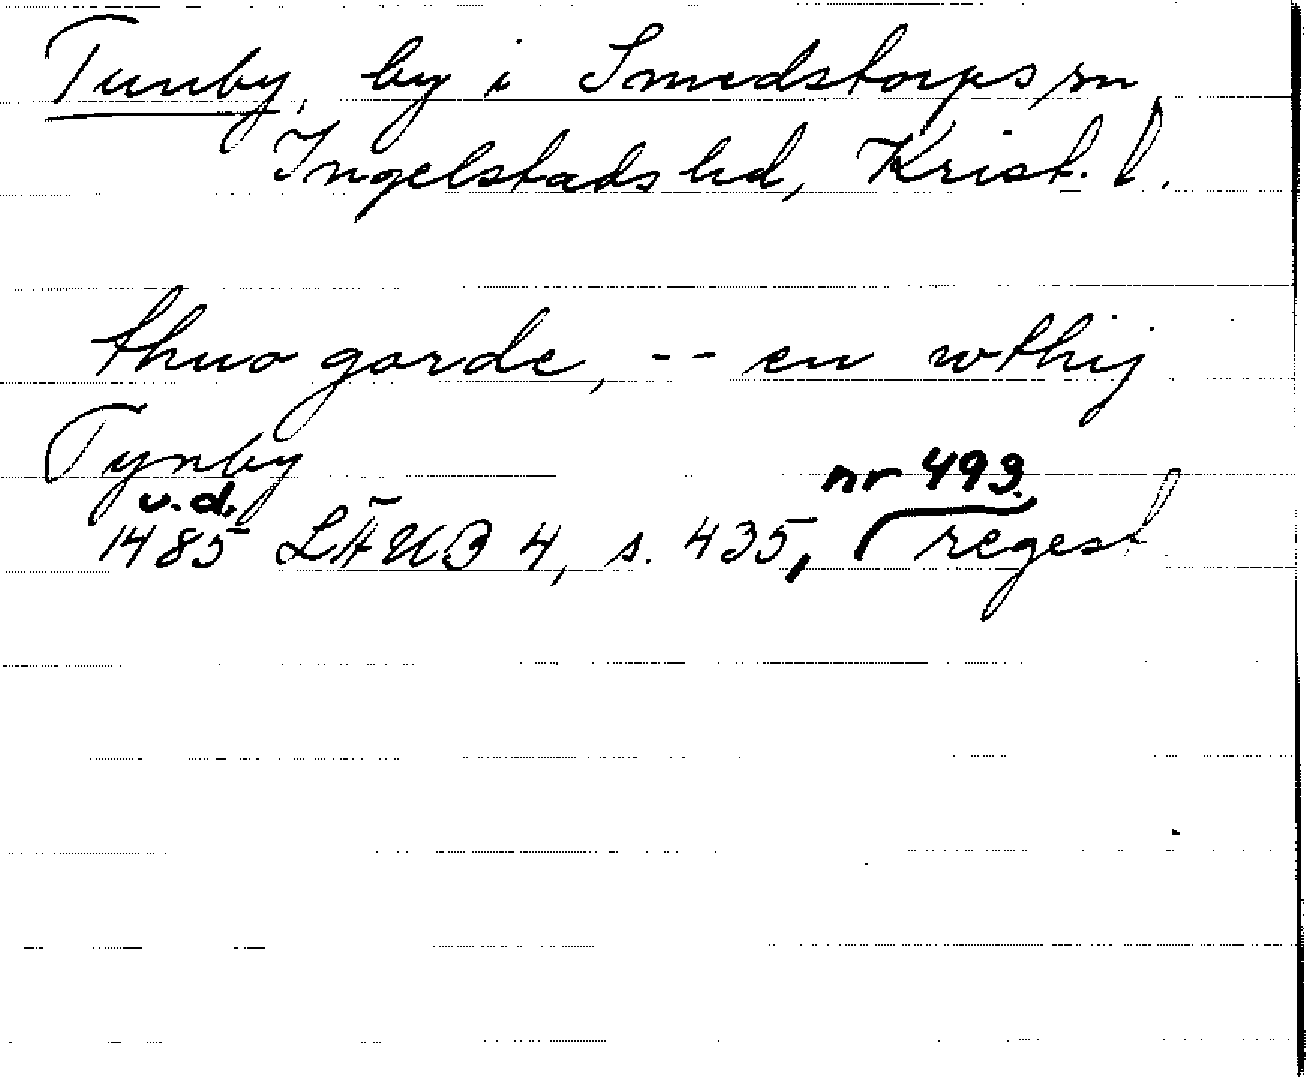 Tunby, by i Smedstorps sn
Ingelstads hd, Krist. l.
thuo gorde, -- en wthij
Tynby
u.d. nr 493.
1485 LÄUB 4, s. 435, regest